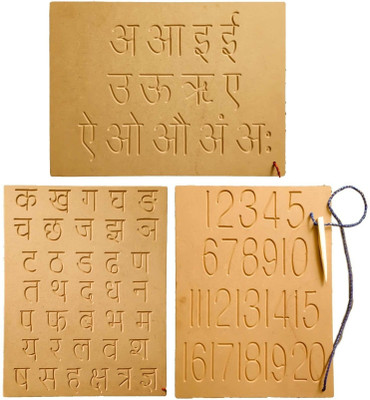 अ आ इ ई
उ ऊ ऋ ए
ऐ ओ औ अं अः
क ख ग घ ङ
च छ ज झ ञ
ट ठ ड ढ ण
त थ द ध न
प फ ब भ म
य र ल व श
ष स ह क्ष त्र ज्ञ
1 2 3 4 5
6 7 8 9 10
11 12 13 14 15
16 17 18 19 20